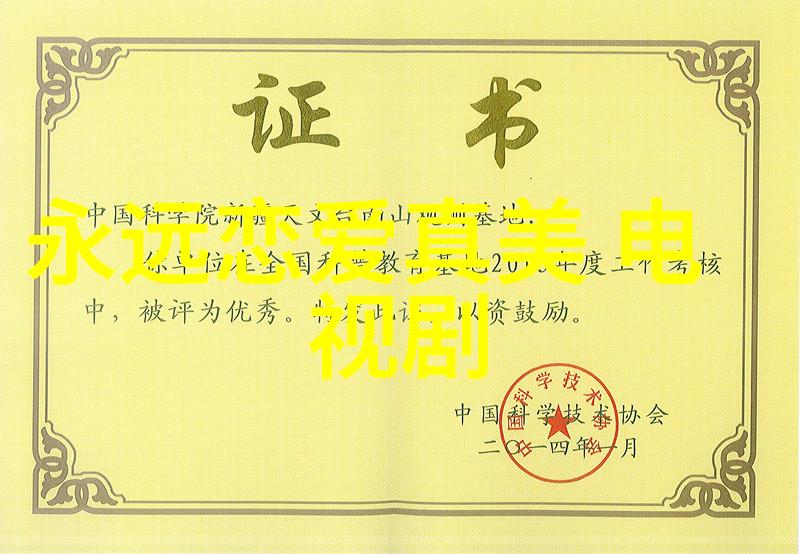 证 书
中国科学院新疆天文台南山观测基地:
你单位在全国科普教育基地2013年度工作考核
中，被评为优秀。特发此证，以资鼓励。
永远恋爱真美 电
视剧
中国科学技术协会
二〇一四年一月
中国科学技术协会